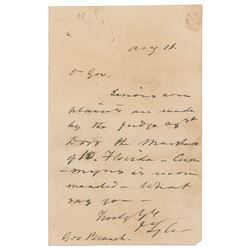 Aug 18.
Dr Gov.
Serious com
plaints are made
by the Judge agst
Dorr the Marshall
of W. Florida - 
is recom
mended - What
say you -
Truly Yrs
J Tyler
Gov Branch.